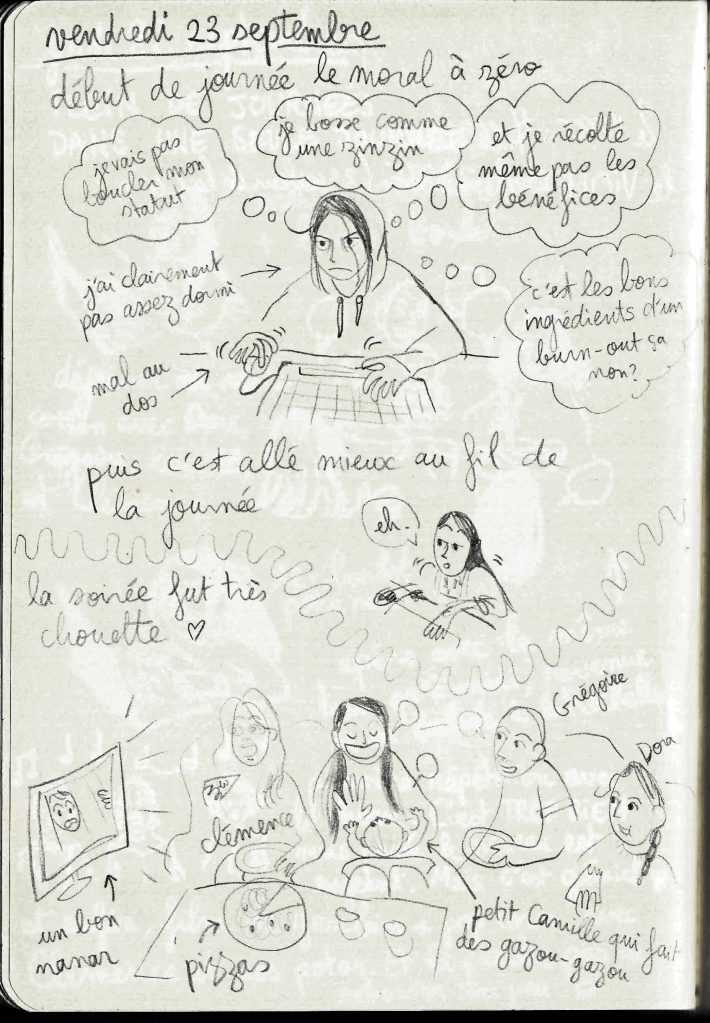 vendredi 23 septembre
début de journée le moral à zéro
je vais pas
boucler mon
statut
je bosse comme
une zinzin
et je récolte
même pas les
bénéfices
j'ai clairement
pas assez dormi
mal au
dos
c'est les bons
ingrédients d'un
burn-out ça
non?
puis c'est allé mieux au fil de
la journée
eh.
la soirée fut très
chouette ♡
Grégoire
Dora
Clémence
un bon
nanar
pizzas
petit Camille qui fait
des gazou-gazou